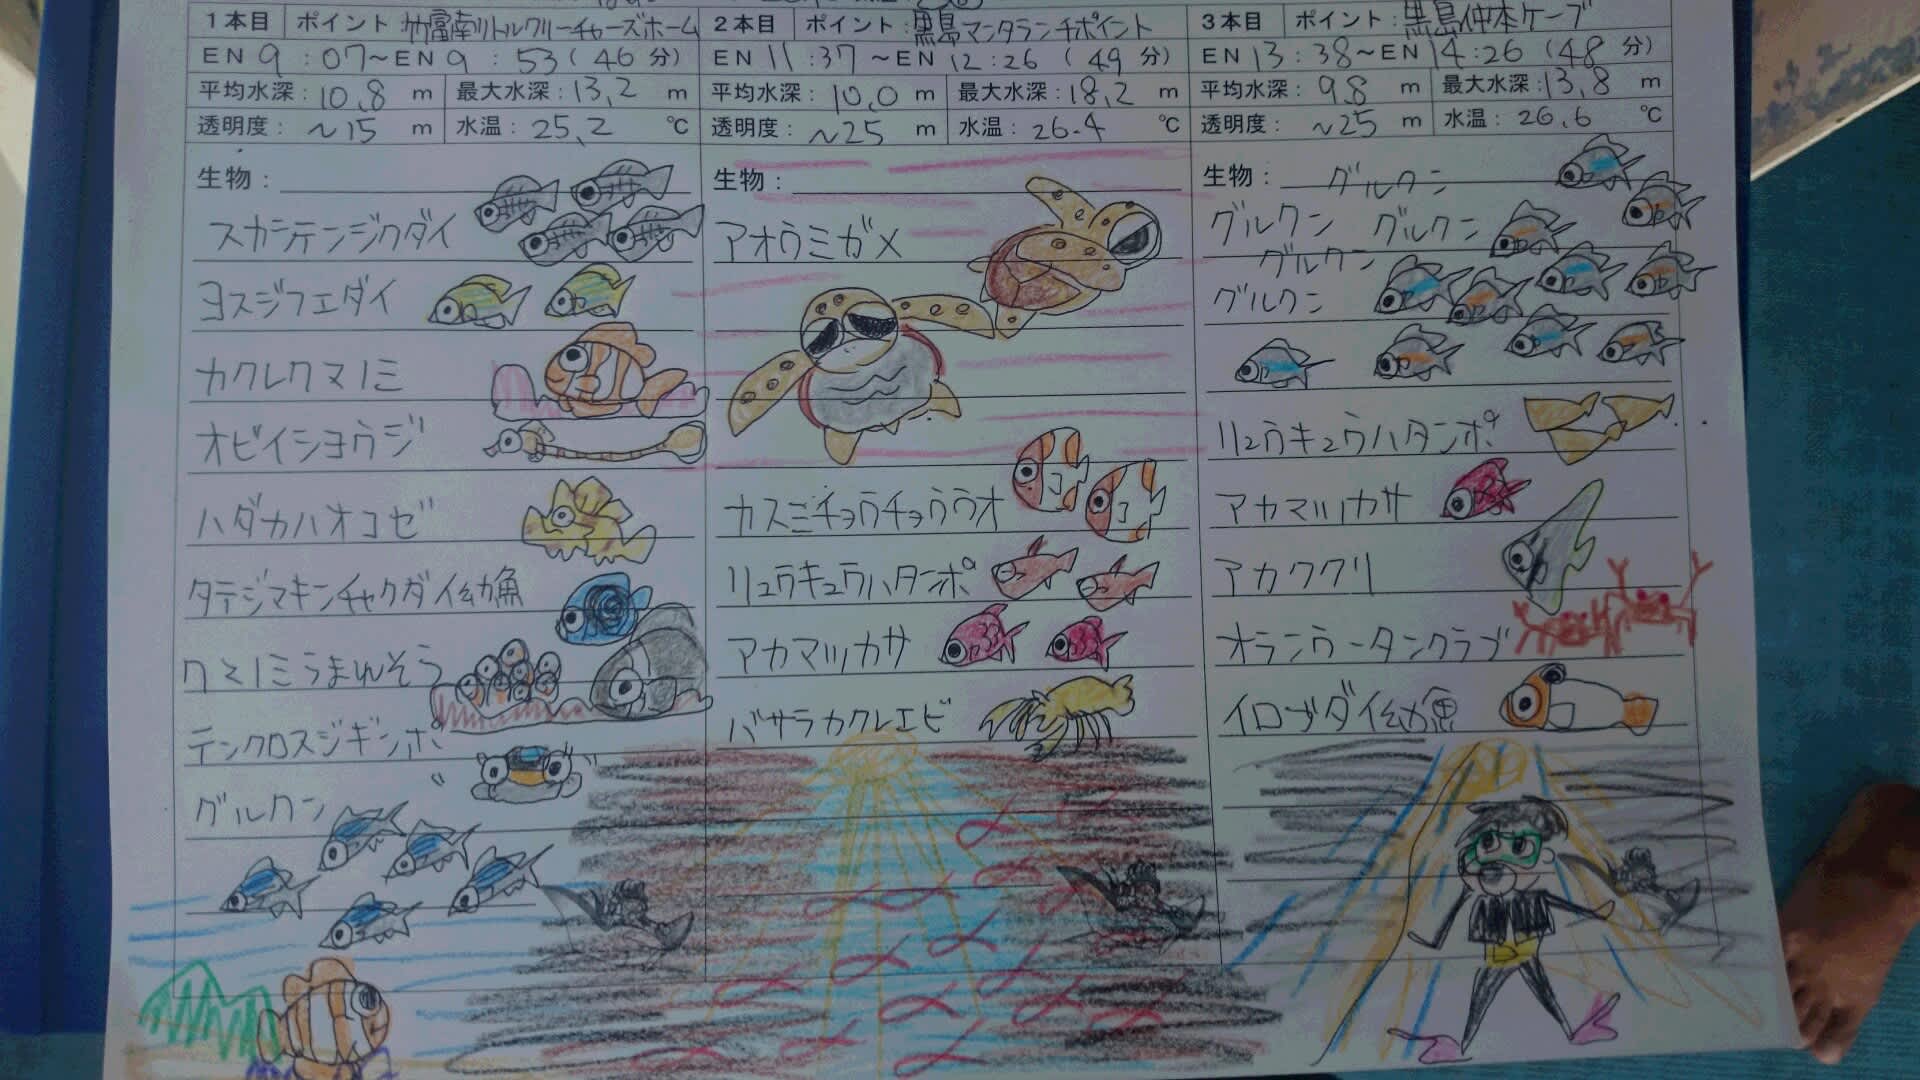 1本目 ポイント 竹富南リトルクリーチャーズホーム
EN 9:07~EN 9:53 (46分)
平均水深:10.8 m 最大水深:13.2 m
透明度: ~15 m 水温:25.2 ℃
生物:
スカシテンジクダイ
ヨスジフエダイ
カクレクマノミ
オビイシヨウジ
ハダカハオコゼ
タテジマキンチャクダイ幼魚
クマノミうまれそう
テンクロスジギンポ
グルクン
2本目 ポイント:黒島マンタランチポイント
EN 11:37~EN 12:26 (49分)
平均水深: 10.0 m 最大水深:18.2 m
透明度: ~25 m 水温: 26.4 ℃
生物:
アオウミガメ
カスミチョウチョウウオ
リュウキュウハタンポ
アカマツカサ
バサラカクレエビ
3本目 ポイント:黒島仲本ケーブ
EN 13:38~EN 14:26 (48分)
平均水深: 9.8 m 最大水深:13.8 m
透明度: ~25 m 水温: 26.6 ℃
生物: グルクン
グルクン グルクン
グルクン
グルクン
リュウキュウハタンポ
アカマツカサ
アカククリ
オランウータンクラブ
イロブダイ幼魚